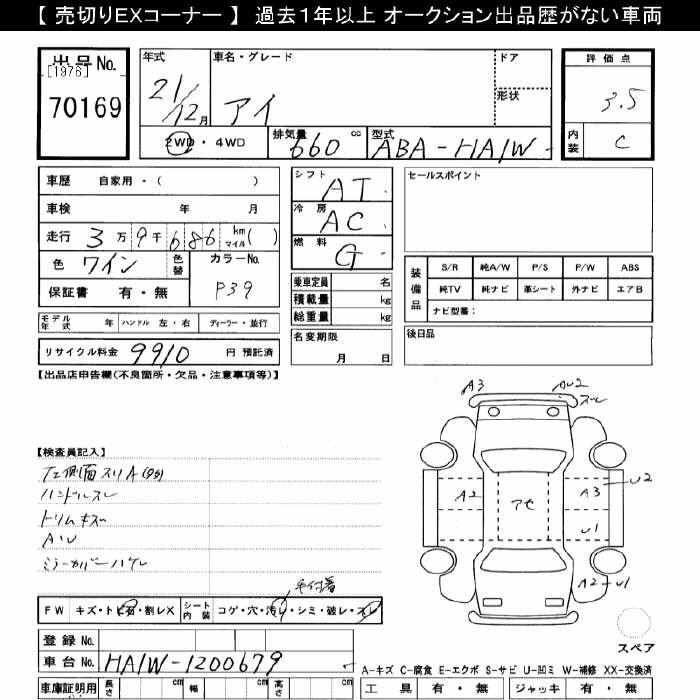 【 売切りEXコーナー 】 過去1年以上 オークション出品歴がない車両
出品No.
[1976]
70169
年式
21/12月
車名・グレード
アイ
ドア
形状
評価点
3.5
内装
C
2WD・4WD
排気量
660 cc
型式
ABA-HA1W-
車歴 自家用・( )
車検 年 月
走行 3万9千686 km マイル( )
色 ワイン 色替 カラーNo.
P39
保証書 有・無
シフト
AT
冷房
AC
燃料
G
乗車定員 名
積載量 kg
総重量 kg
名変期限
月 日
セールスポイント
装備品
S/R 純A/W P/S P/W ABS
純TV 純ナビ 革シート 外ナビ エアB
ナビ型番:
後日品
モデル年式 年 ハンドル 左・右 ディーラー・並行
リサイクル料金 9910 円 預託済
【出品店申告欄(不良箇所・欠品・注意事項等)】
【検査員記入】
左側面スリA(タタ)
ハンドルスレ
トリムキズ
AU
ミラーカバーハゲレ
A3
AU2
スレ
A2
アセ
A3
U2
U1
A2-U1
スペア
毛付着
FW キズ・トビ石・割レX シート内装 コゲ・穴・汚レ・シミ・破レ・スレ
登録No.
車台No. HA1W-1200679
車庫証明用 長さ cm 幅 cm 高さ cm
A-キズ C-腐食 E-エクボ S-サビ U-凹ミ W-補修 XX-交換済
工具 有・無 ジャッキ 有・無